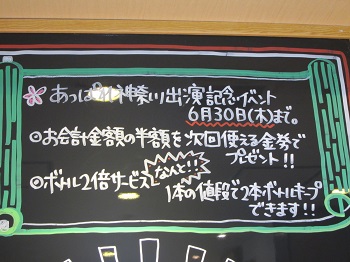 あっぱれ神奈川出演記念イベント
6月30日(木)まで。
お会計金額の半額を次回使える金券で
プレゼント!!
ボトル2倍サービス なんと!!
1本の値段で2本ボトルキープ
できます!!